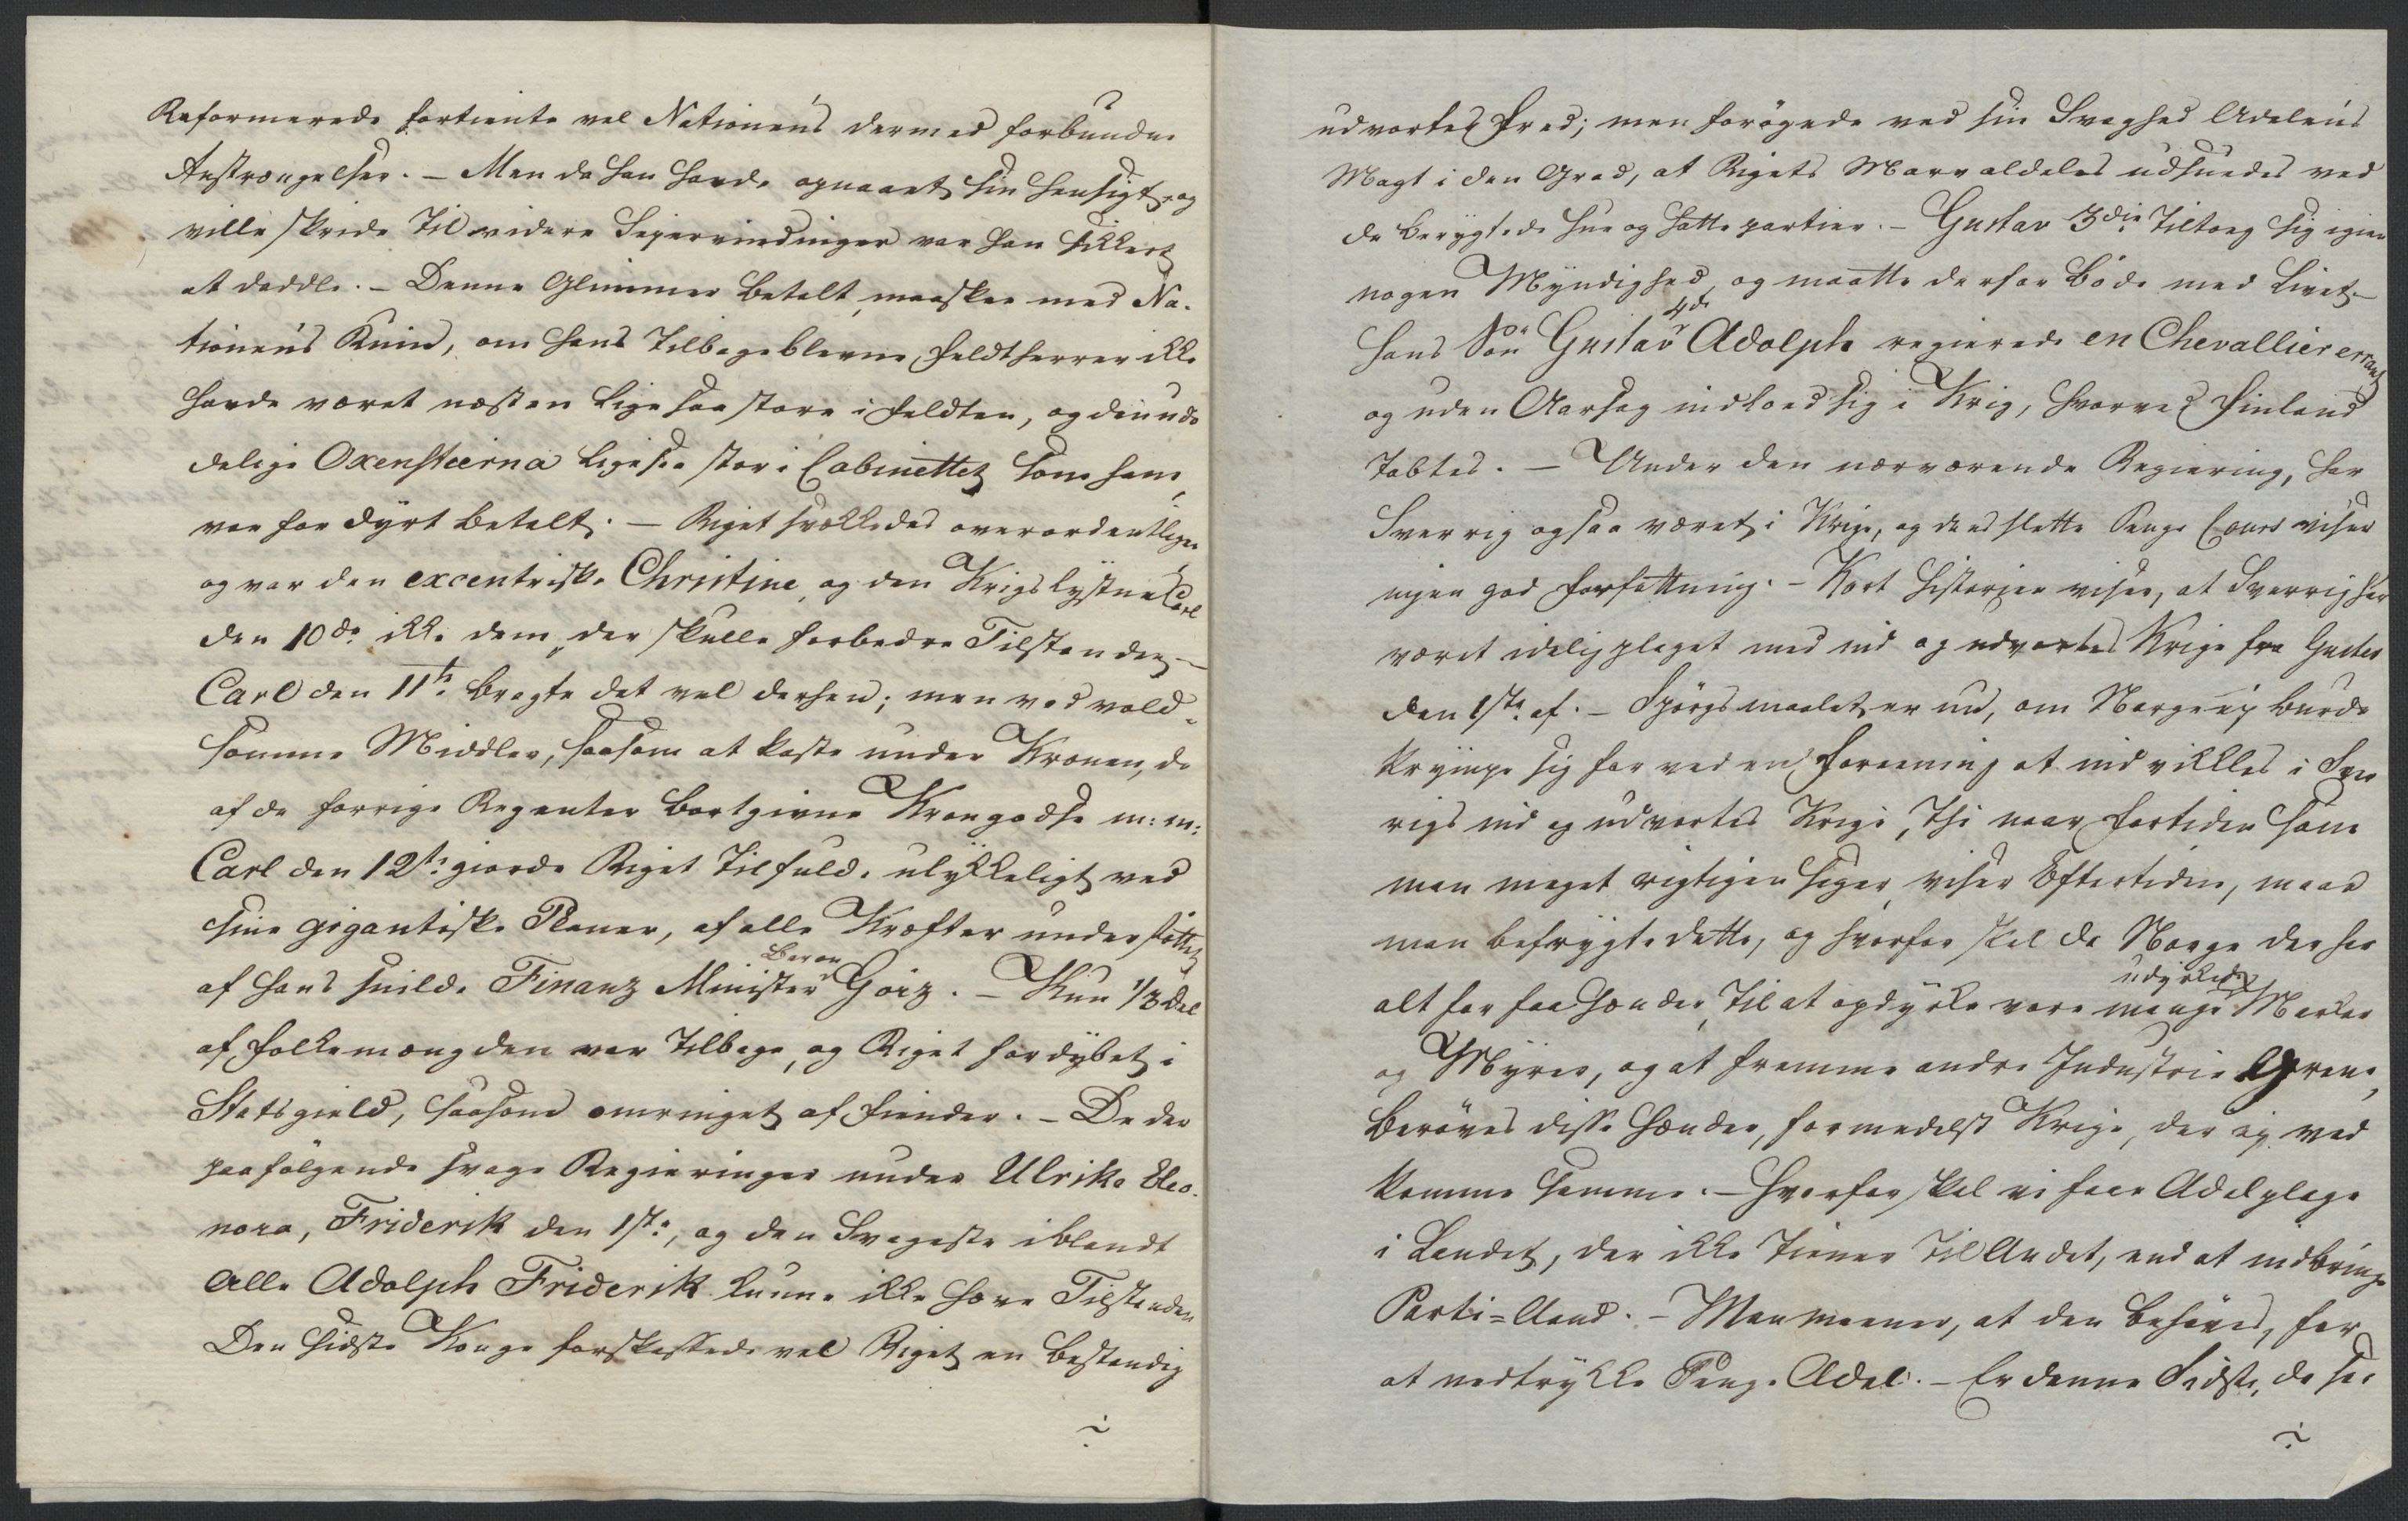 Reformerede fortiente vel Nationens dermed forbundne
Anstrængelser. – Men da han havde opnaaet sin Hensigt, og
ville skride til videre Seiervindinger var han sikkert
at daddle. – Denne Glimmer betalt, maaskee med Na-
tionens Ruin, om hans tilbageblevne Feldtherrer ikke
havde været næsten lige saa store i Feldten, og den udø
delige Oxenstierna ligesaa stor i Cabinettet som ham,
var for dyrt betalt. – Riget svækkedes overordentligen
og var den excentriske Christine, og den Krigslystne Carl
den 10de ikke dem, der skulle forbedre Tilstanden –
Carl den 11te bragte det vel derhen; men ved vold-
somme Middler, saasom at kaste under Kronen, de
af de forrige Regenter bortgivne Krongodse m: m:
Carl den 12te giorde Riget tilfulde ulykkeligt ved
sine gigantiske Planer, af alle Kræfter understøttet
af hans snilde Finanz Minister Baron Görz. – Kun 1/3 Deel
af Folkemængden var tilbage, og Riget fordybet i
Statsgield, saasom omringet af Fiender. – De der
paafølgende svage Regieringer under Ulrika Eleo-
nora, Friderik den 1ste, og den Svageste iblandt
Alle Adolph Friderik kunne ikke hæve Tilstanden
Den sidste Konge forskaffede vel Riget en bestandig
udvortes Fred; men forøgede ved sin Svaghed Adelens
Magt i den Grad, at Rigets Marv aldeles udsuedes ved
de berygtede Hue og Hatte partier. – Gustav 3die tiltoeg sig igien
nogen Myndighed, og maatte derfor bøde med Livet –
Hans Søn Gustav 4de Adolph regierede en Chevallier errant
og uden Aarsag indloed sig i Krig, hvorved Finland
tabtes. – Under den nærværende Regiering, har
Sverrig ogsaa været i Krige, og dens slette Penge Cours viser
ingen god Forfattning. – Kort Historien viser, at Sverrig har
været idelig plaget med ind og udvortes Krige fra Gustav
den 1ste af. – Spørgsmaalet er nu, om Norge ej burde
krympe sig for ved en Foreening at indvikkles i Sver
rigs ind og udvortes Krige, Thi naar Fortiden som
man meget rigtigen siger, viser Eftertiden, maae
man befrygte dette, og hvorfor skal da Norge der har
alt for faa Hænder, til at opdyrke vore mange udyrkede Marker
og Myrer, og at fremme andre Industrie Grene,
berøves disse Hænder, formedelst Krige, der ej ved
komme samme. – Hvorfor skal vi faae Adelplage
i Landet, der ikke tiener til Andet, end at indbringe
Parti-Aand. – Man meener, at den behøves, for
at nedtrykke Penge Adel. – Er denne Sidste, da saa